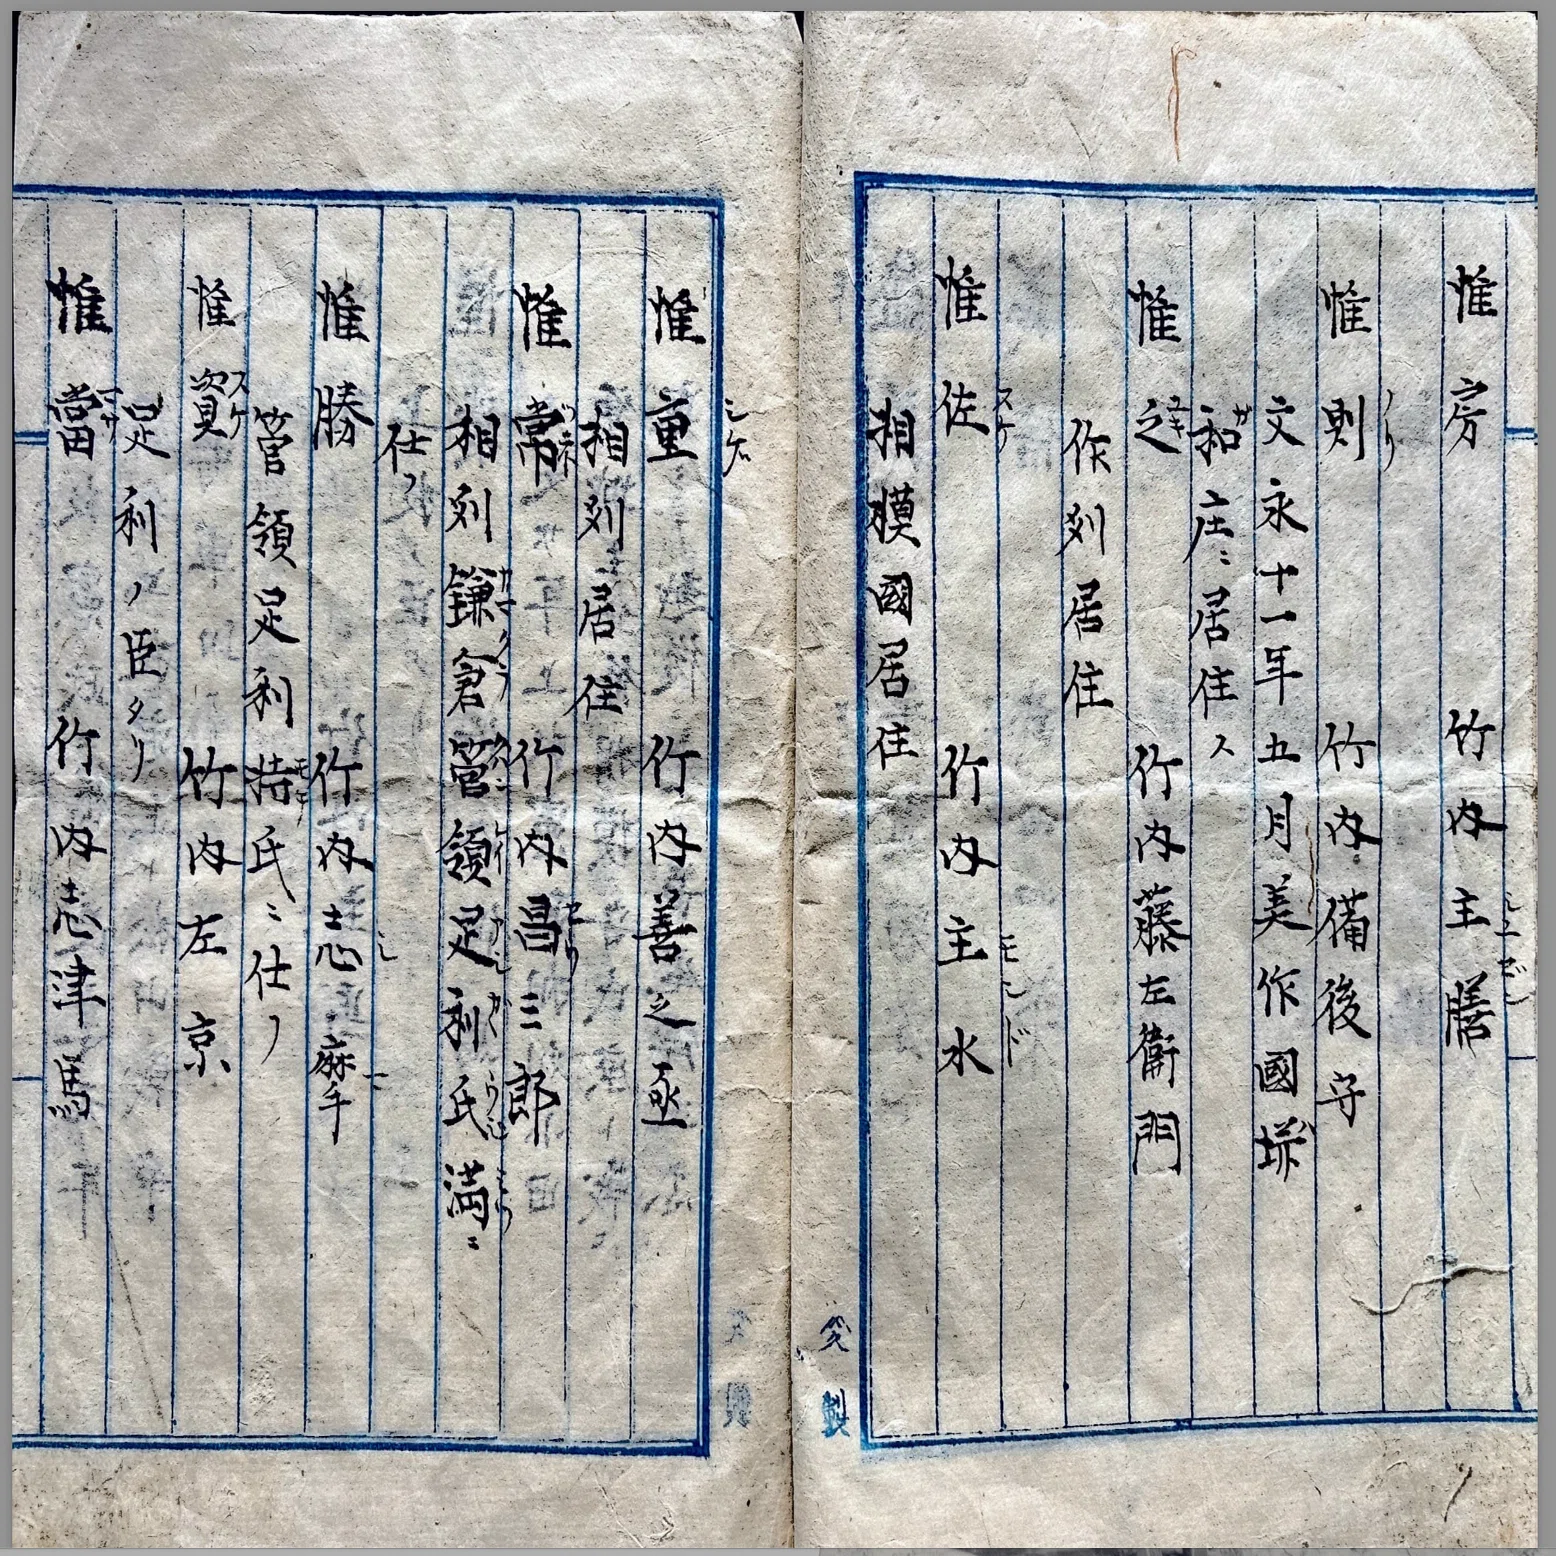 惟房 竹内主膳
惟則 竹内備後守
文永十一年五月美作國垪
和庄ニ居住ス
惟之 竹内藤左衛門
作刕居住
惟佐 竹内主水
相模國居住
惟重 竹内善之丞
相刕居住
惟常 竹内昌三郎
相刕鎌倉管領足利氏満ニ
仕フ
惟勝 竹内志摩
管領足利持氏ニ仕フ
惟資 竹内左京
足利ノ臣タリ
惟當 竹内志津馬
製